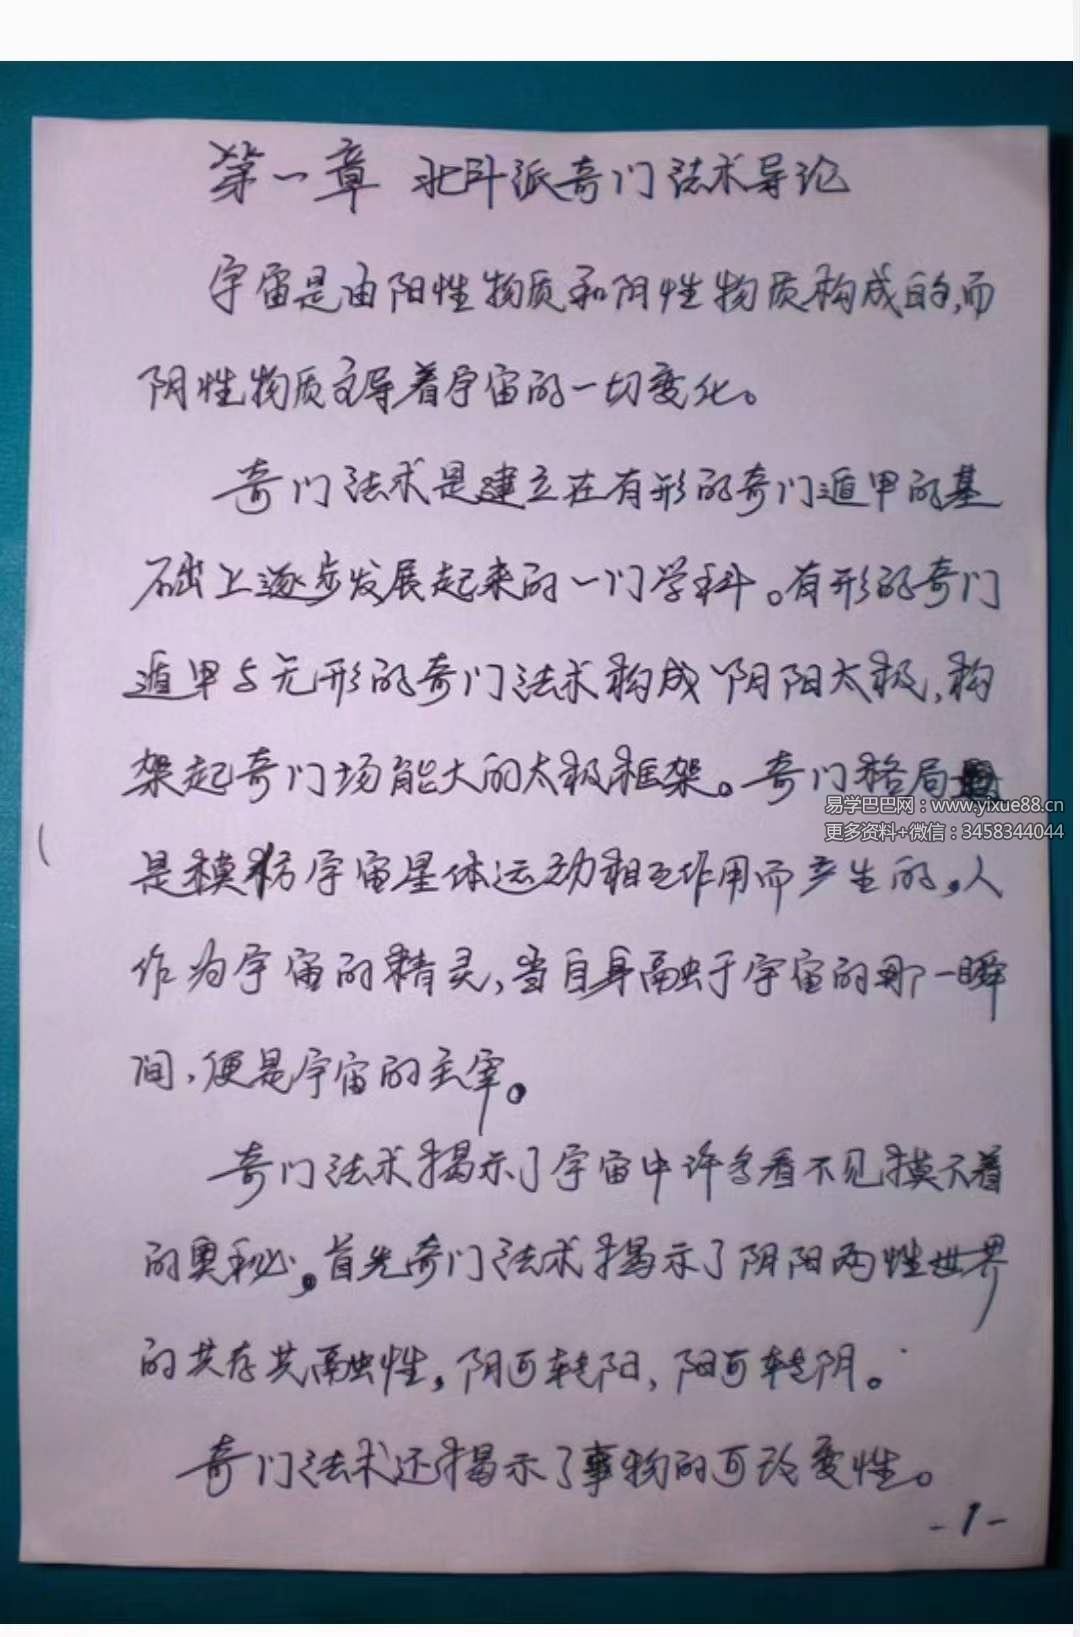 第一章 北斗派奇门法术导论
宇宙是由阳性物质和阴性物质构成的,而
阴性物质主导着宇宙的一切变化。
奇门法术是建立在有形的奇门遁甲的基
础上逐步发展起来的一门学科。有形的奇门
遁甲与无形的奇门法术构成阴阳太极,构
架起奇门场能大的太极框架。奇门格局
易学巴巴网:www.yixue88.cn
更多资料+微信:3458344044
是模仿宇宙星体运动相互作用而产生的。人
作为宇宙的精灵,当自身融于宇宙的那一瞬
间,便是宇宙的主宰。
奇门法术揭示了宇宙中许多看不见摸不着
的奥秘。首先奇门法术揭示了阴阳两性世界
的共存共融性。阴可转阳,阳可转阴。
奇门法术还揭示了事物的可改变性。
-1-